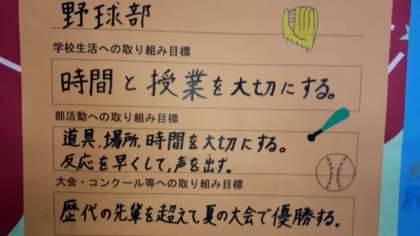 野球部
学校生活への取り組み目標
時間と授業を大切にする。
部活動への取り組み目標
道具、場所、時間を大切にする。
反応を早くして、声を出す。
大会・コンクール等への取り組み目標
歴代の先輩を超えて夏の大会で優勝する。